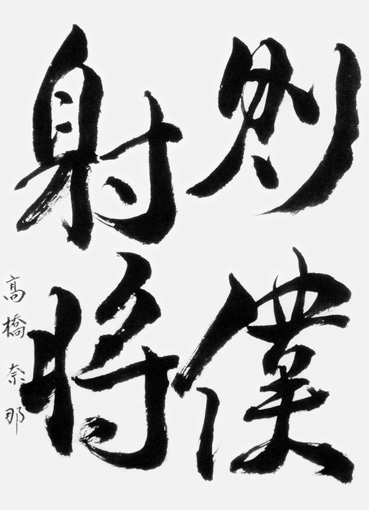 則僕
射将
高橋奈那